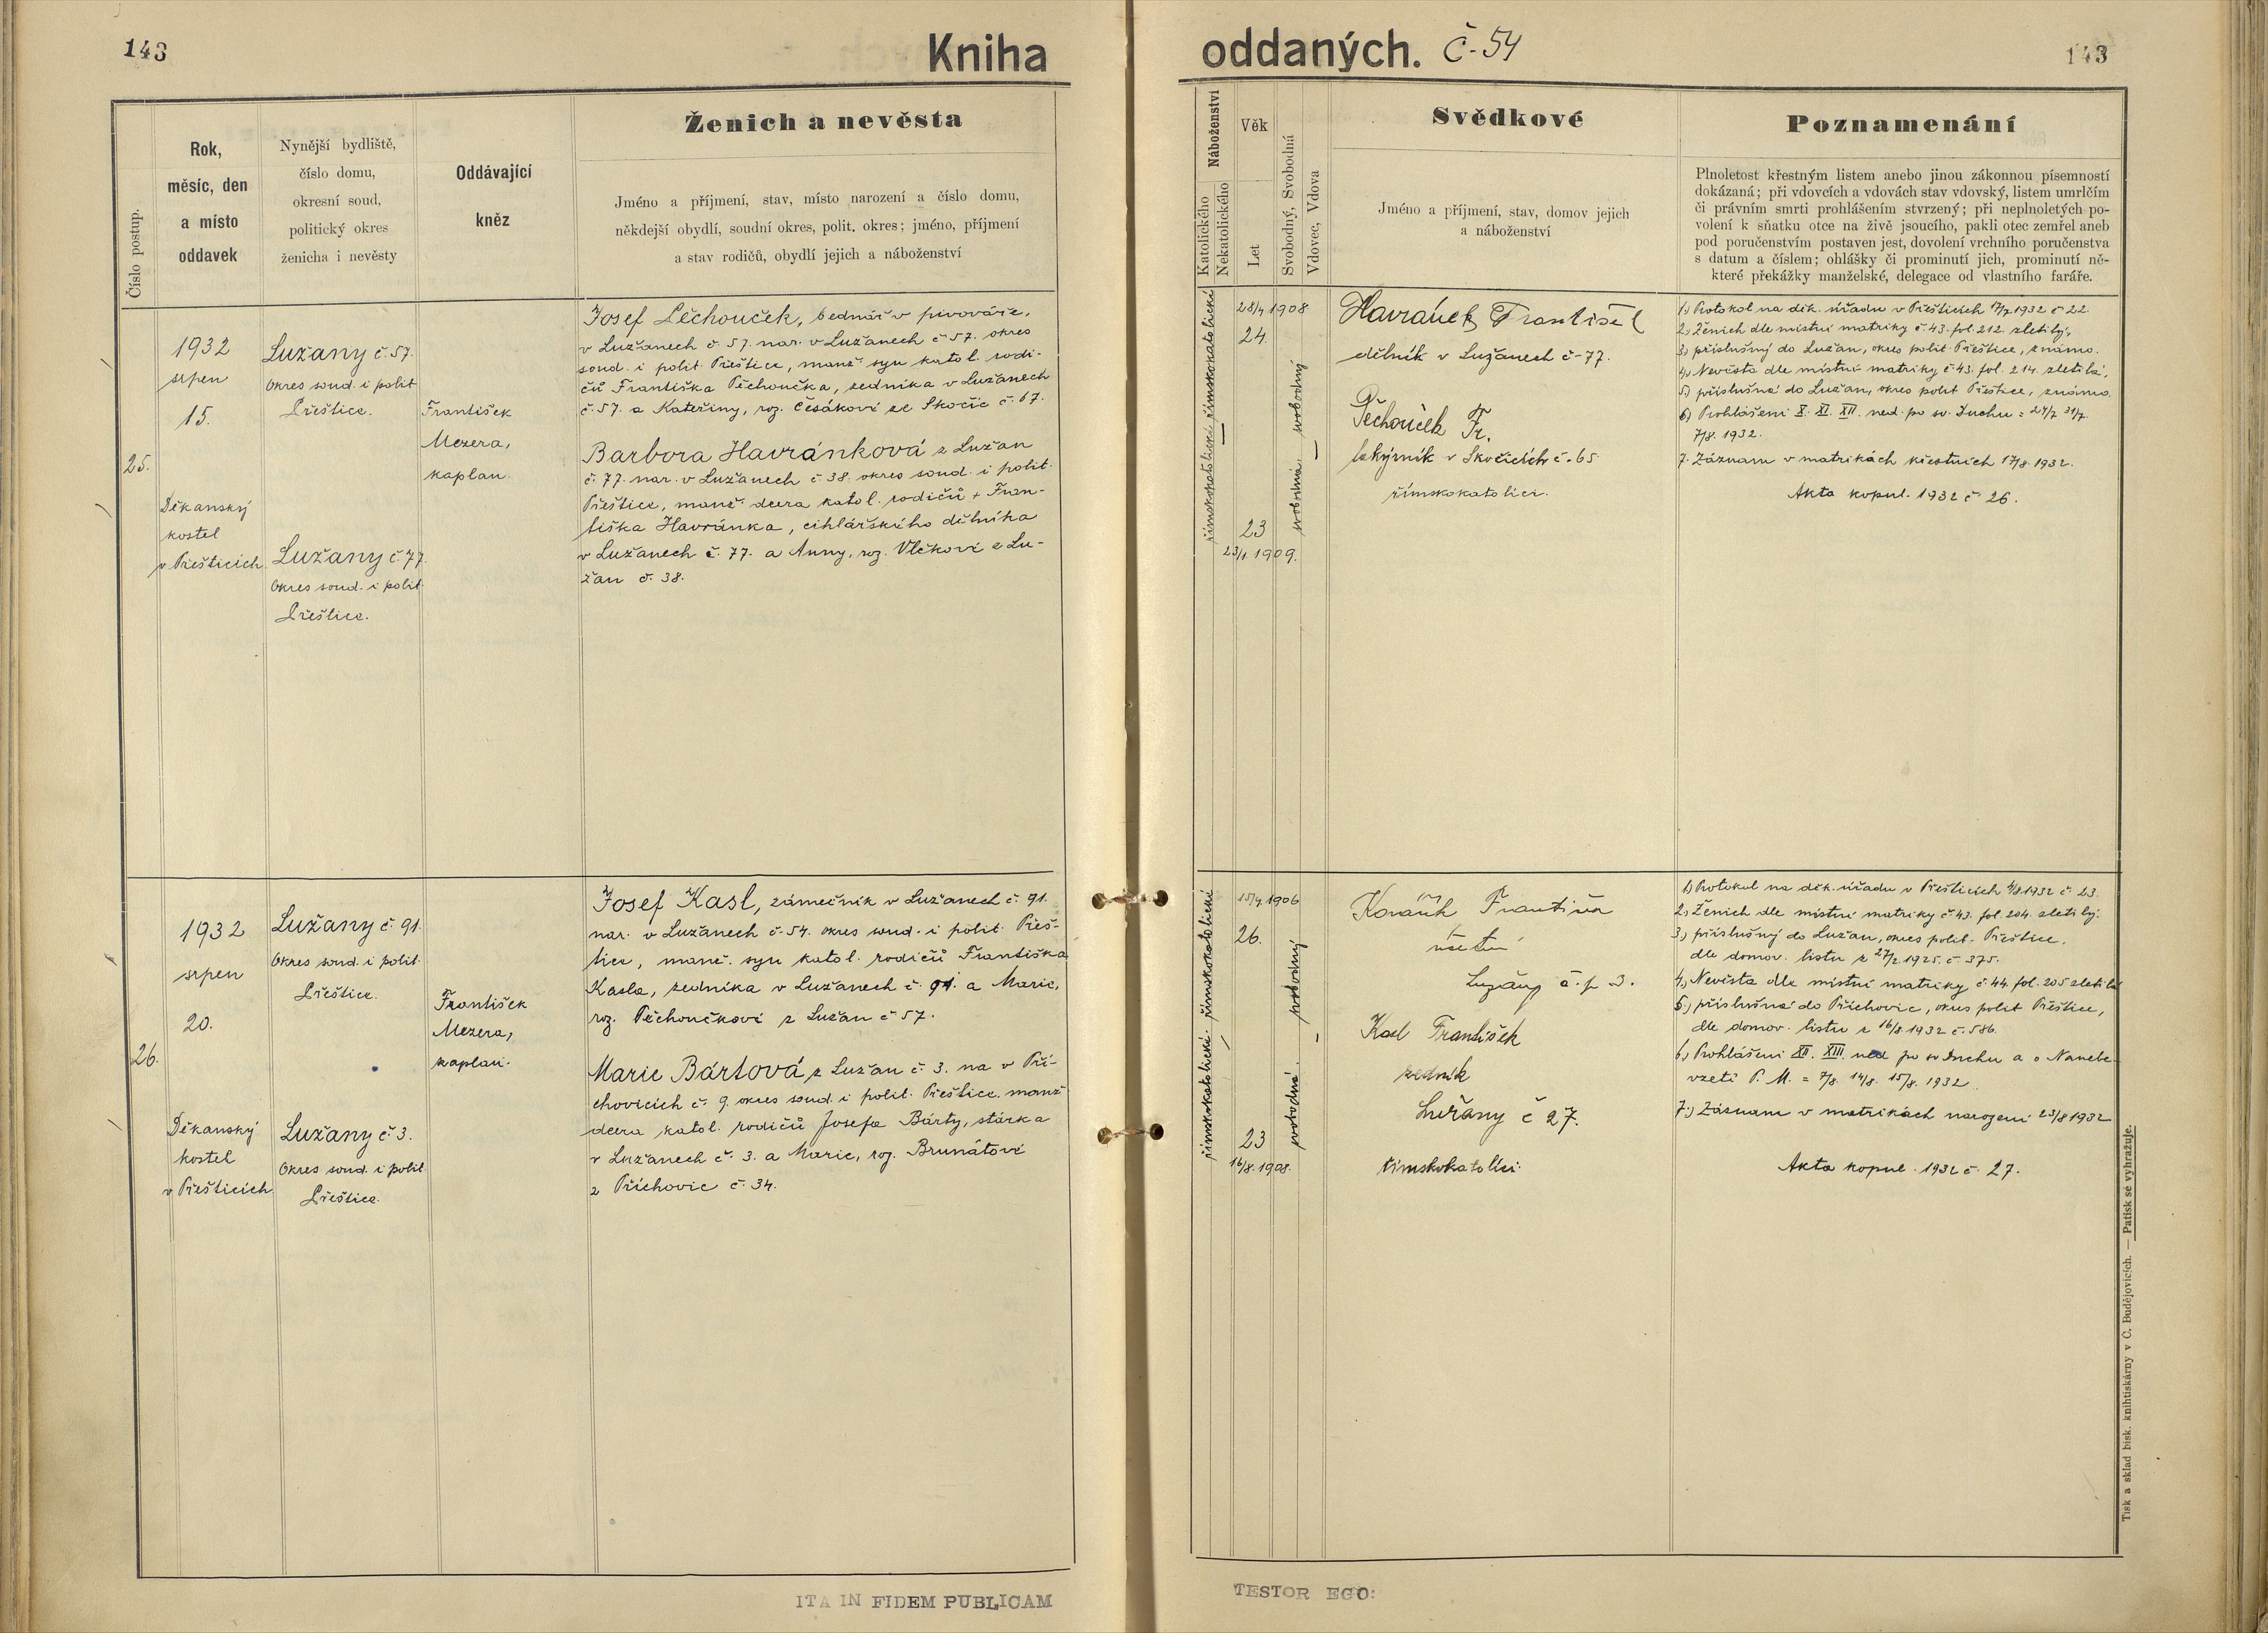 143
Kniha
oddaných. č-54
143
Číslo postup.
Rok,
měsíc, den
a místo
oddavek
Nynější bydliště,
číslo domu,
okresní soud,
politický okres
ženicha i nevěsty
Oddávající
kněz
Ženich a nevěsta
Jméno a příjmení, stav, místo narození a číslo domu,
někdejší obydlí, soudní okres, polit. okres; jméno, příjmení
a stav rodičů, obydlí jejich a náboženství
Náboženství
Katolického
Nekatolického
Věk
Let
Svobodný, Svobodná
Vdovec, Vdova
Svědkové
Jméno a příjmení, stav, domov jejich
a náboženství
Poznamenání
Plnoletost křestným listem anebo jinou zákonnou písemností
dokázaná; při vdovcích a vdovách stav vdovský, listem umrlčím
či právním smrti prohlášením stvrzený; při neplnoletých po-
volení k sňatku otce na živě jsoucího, pakli otec zemřel aneb
pod poručenstvím postaven jest, dovolení vrchního poručenstva
s datum a číslem; ohlášky či prominutí jich, prominutí ně-
které překážky manželské, delegace od vlastního faráře.
25.
1932
srpen
15.
Děkanský
kostel
v Přešticích
Lužany č. 57.
Okres soud. i polit
Přeštice.
Lužany č. 77.
Okres soud. i polit.
Přeštice.
František
Mezera,
kaplan.
Josef Pěchouček, bednář v pivováře,
v Lužanech č. 57. nar. v Lužanech č 57. okres
soud. i polit. Přeštice, manž. syn katol. rodi-
čů Františka Pěchoučka, zedníka v Lužanech
č. 57. a Kateřiny, roz. Česákové ze Skočic č. 67.
Barbora Havránková z Lužan
č. 77. nar. v Lužanech č. 38. okres soud. i polit.
Přeštice, manž. dcera katol. rodičů + Fran-
tiška Havránka, cihlářského dělníka
v Lužanech č. 77. a Anny, roz. Vlčkové z Lu-
žan č. 38.
římskokatolické římskokatolické
28/4 1908
24.
23
23/1. 1909.
svobodná. svobodný
Havránek František
dělník v Lužanech č-77.
Pěchouček Fr.
v Skočicích č-65
římskokatolíci.
1.) Protokol na děk. úřadu v Přešticích 17/7 1932 č 22.
2.) Ženich dle místní matriky č 43. fol. 212. zletilý,
3.) příslušný do Lužan, okres polit. Přeštice, známo.
4.) Nevěsta dle místní matriky č 43. fol. 214. zletilá,
5.) příslušná do Lužan, okres polit Přeštice, známo.
6.) Prohlášeni X. XI. XII. ned. po sv. Duchu = 24/7 31/7.
7/8. 1932.
7. Záznam v matrikách křestních 17/8. 1932.
Akta kopul. 1932 č 26.
26.
1932
srpen
20.
Děkanský
kostel
v Přešticích
Lužany č. 91.
Okres soud. i polit.
Přeštice.
Lužany č. 3.
Okres soud. i polit.
Přeštice.
František
Mezera,
kaplan.
Josef Kasl, zámečník v Lužanech č. 91.
nar. v Lužanech č-54. okres soud. i polit. Přeš-
tice, manž. syn katol. rodičů Františka
Kasla, zedníka v Lužanech č. 91. a Marie,
roz. Pěchoučkové z Lužan č 57.
Marie Bártová z Lužan č. 3. na v Pří-
chovicích č. 9. okres soud. i polit. Přeštice. manž
dcera katol. rodičů Josefa Bárty, stárka
v Lužanech č. 3. a Marie, roz. Brunátové
z Příchovic č. 34.
římskokatolické. římskokatolické
15/4. 1906
26.
23
16/8. 1908.
svobodná. svobodný
Lužany č. p 3.
Kasl František
zedník
Lužany č 27.
římskokatolíci.
1.) Protokol na děk. úřadu v Přešticích 4/8. 1932 č. 23.
2.) Ženich dle místní matriky č. 43. fol. 204. zletilý.
3.) příslušný do Lužan, okres polit. Přeštice.
dle domov. listu z 27/2 1925. č. 375.
4.) Nevěsta dle místní matriky č 44. fol. 205 zletilá
5.) příslušná do Příchovic, okres polit Přeštice,
dle domov. listu z 16/8. 1932 č. 586.
6.) Prohlášeni XII. XIII. ned po sv Duchu a o Nanebe-
vzetí P. M. = 7/8. 14/8. 15/8. 1932
7.) Záznam v matrikách narození 23/8 1932
Akta kopul. 1932 č 27.
Tisk a sklad bisk. knihtiskárny v Č. Budějovicích. — Patisk se vyhražuje.
ITA IN FIDEM PUBLICAM
TESTOR EGO: